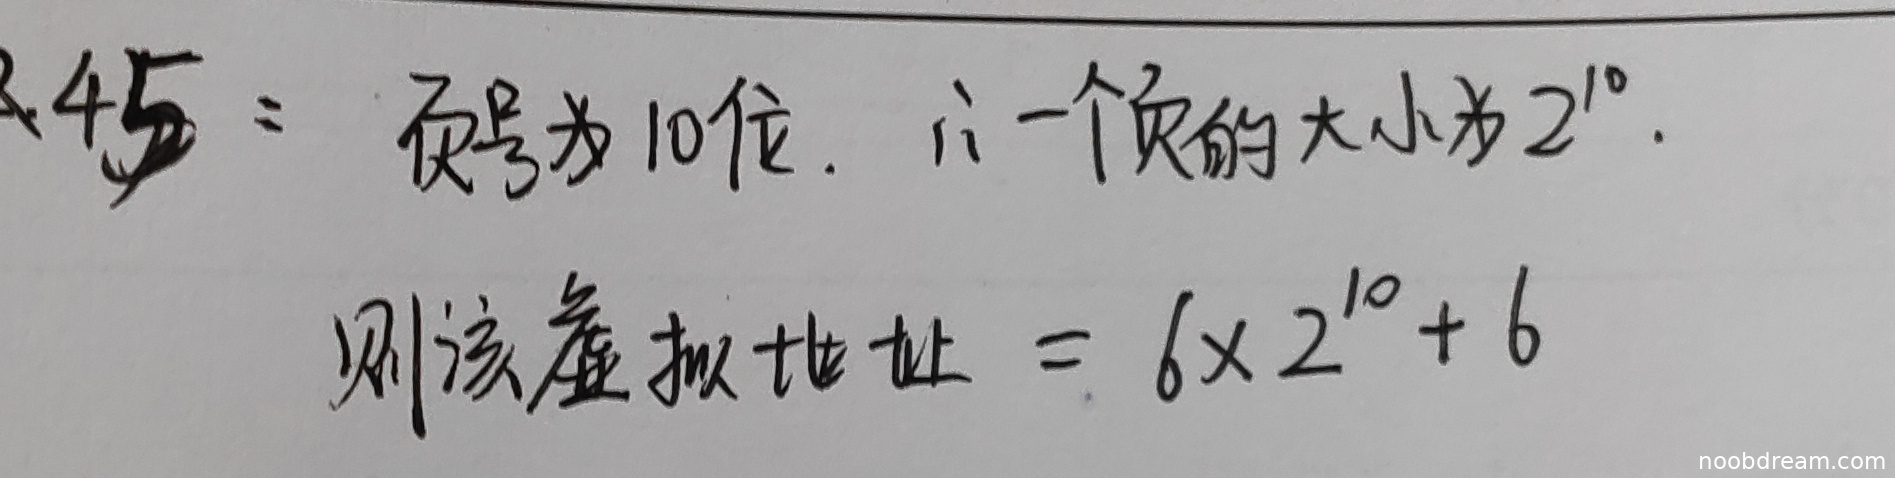 45： 页号为10位. ∴一个页的大小为2¹⁰.
则该虚拟地址 = 6×2¹⁰+6
noobdream.com